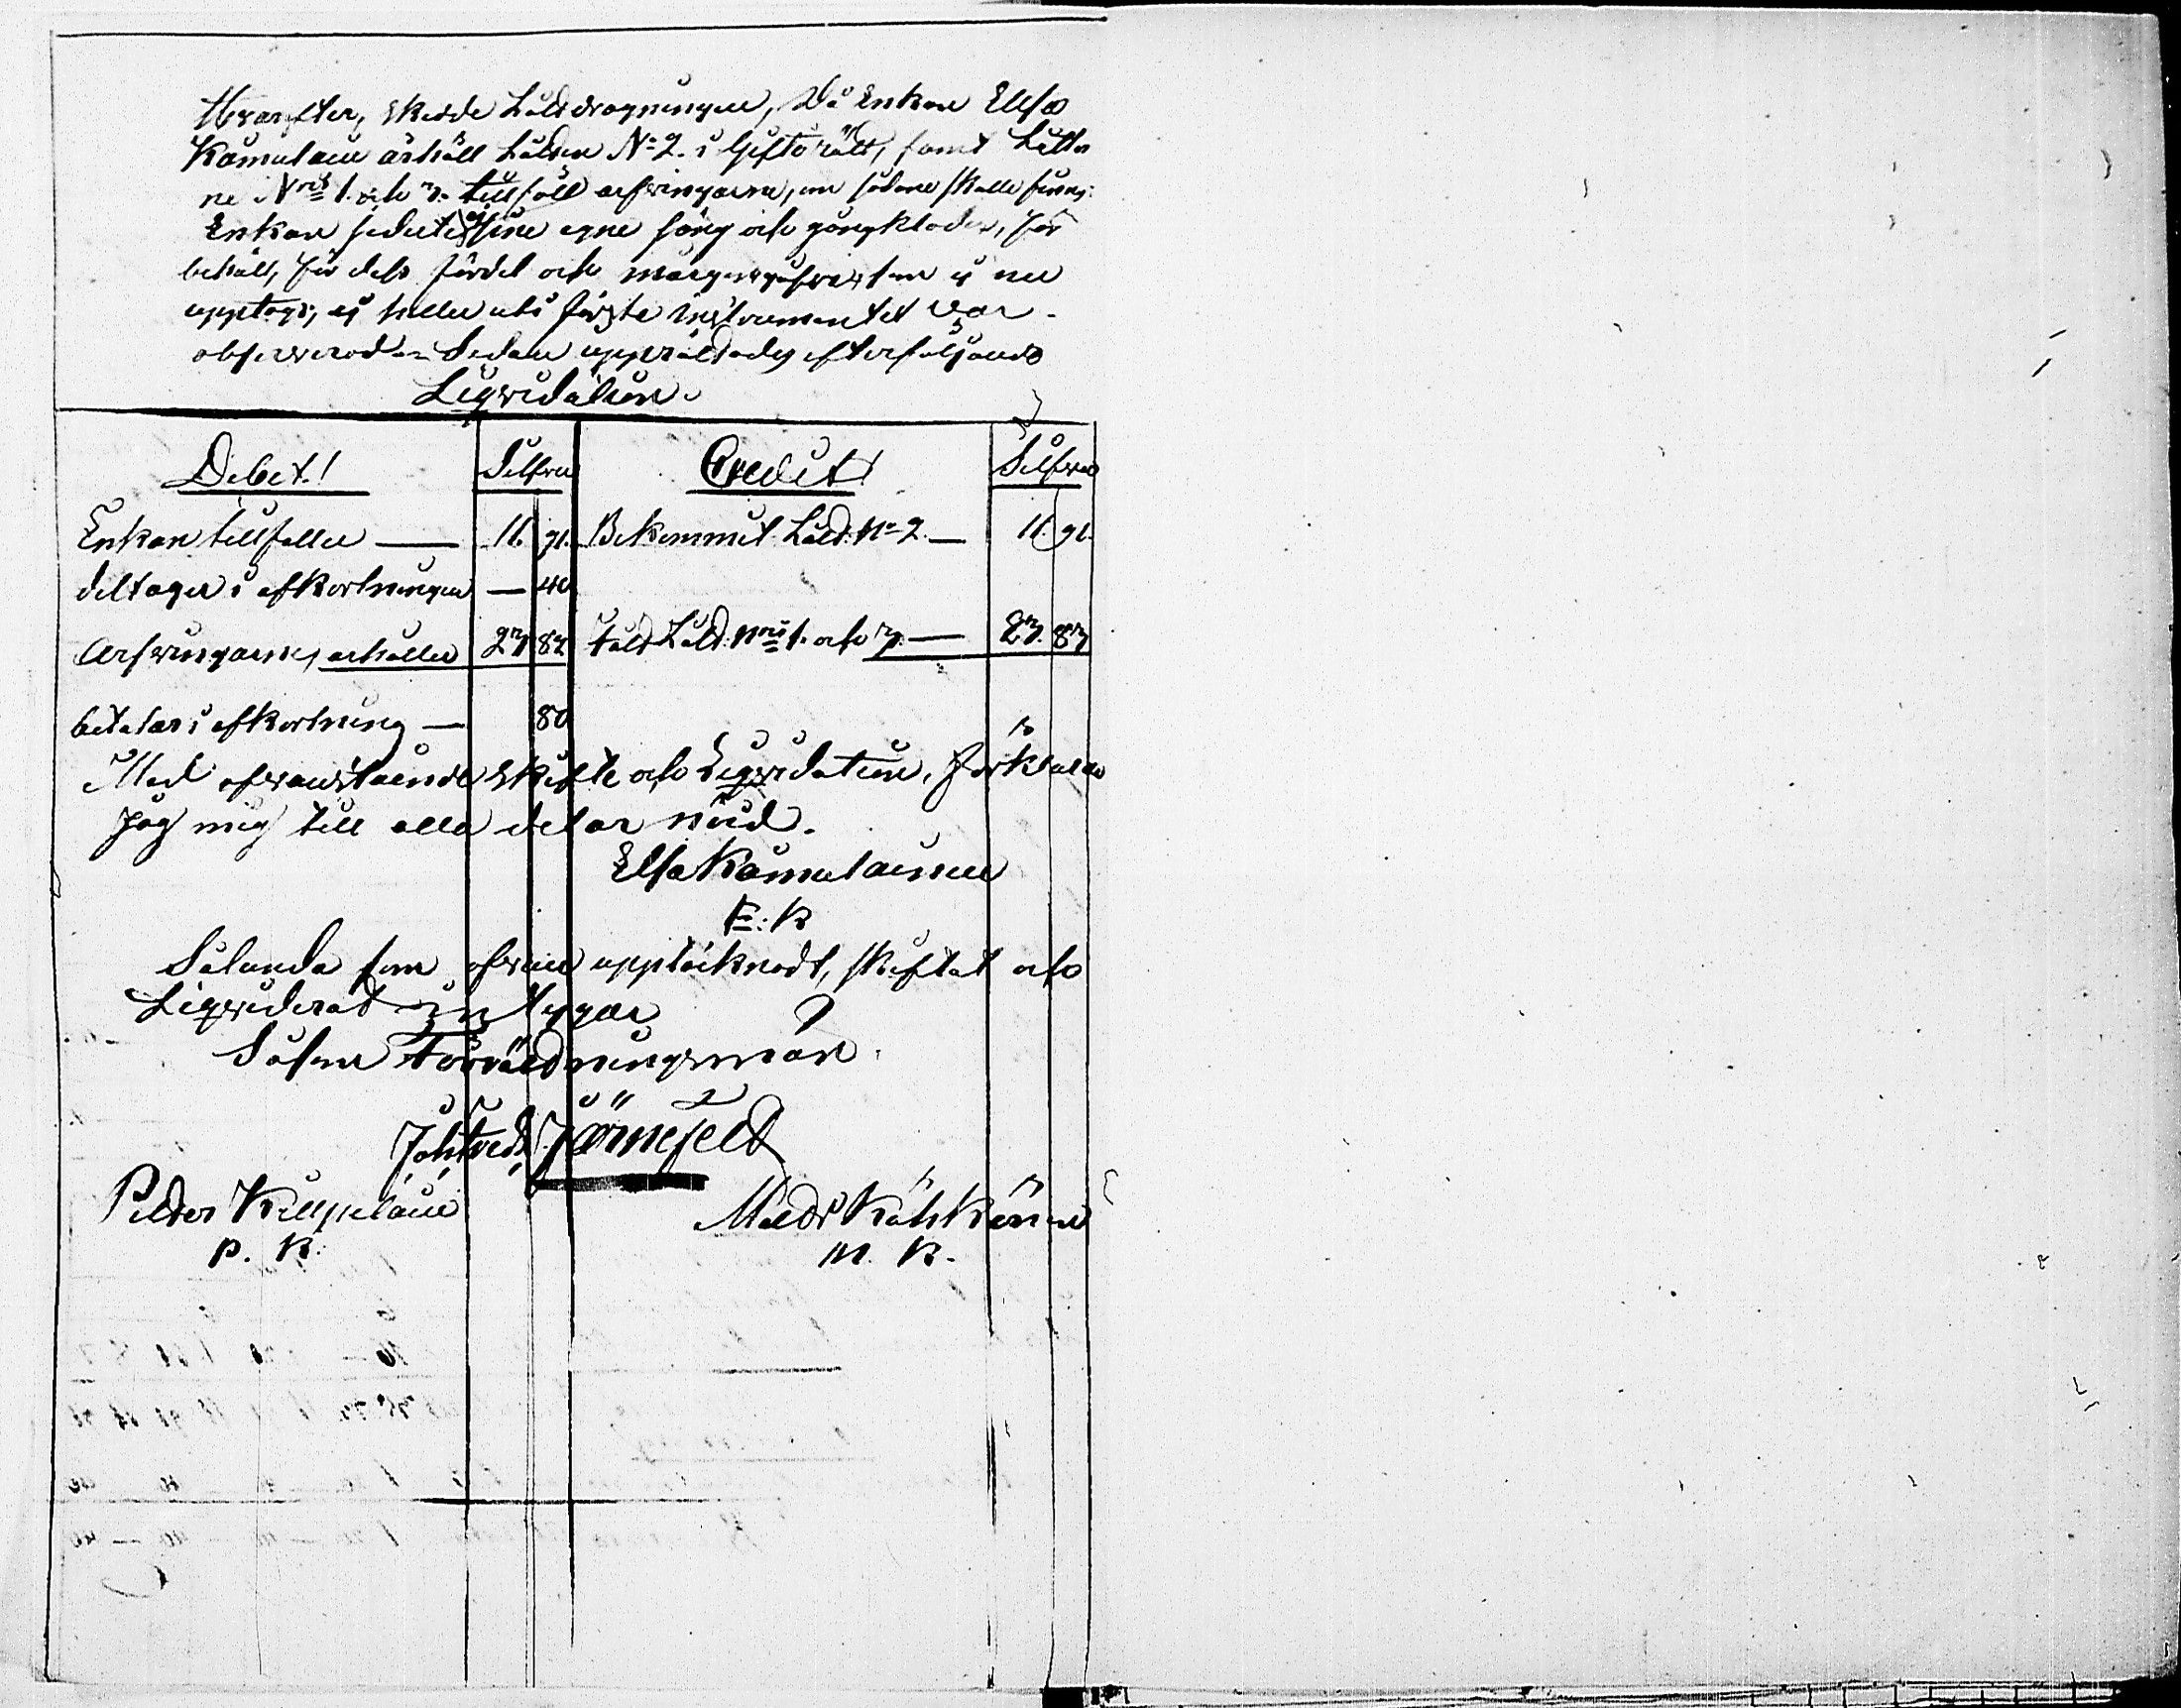 Hwarefter, skedde Lottdragningen, Då Enkan Elsa
Kämäläin ärhöll Lotten N:o 2. i Giftorätt, samt Lotter
ne N:ris 1. och 3. tillföll arfwingarne, om sådane skulle finnas:
Enkan sine egne säng och gångkläder, för
behåll, för dess fördel och morgongåfva ej nu
upptogs; ej heller uti förste instrumentet var
observerad. Sedan upprättades efterföljande
Liqvidation.
Debet! Silfver Credit! Silfver
Enkan tillfaller — 11. 91. Bekommit Lott. N:o 2. — 11. 91.
deltager i afkortningen — 40
Arfwingarne, erhåller 23 82 Fått Lott. N:ris 1. och 3. — 23. 83
betalar i afkortning — 80
Med ofvanstående skifte och Liqvidation, förklarar
jag mig till alla delar nöjd.
Elsa Kämäläinen
E: K
Sålunda som ofvan upptäcknadt, skiftat och
Liqviderat är, Intygar
Såsom Förrättningsman
Joh: Fredr: Järnefelt
Petter Killpeläin Matts Kähkönen
P. K. M. K.